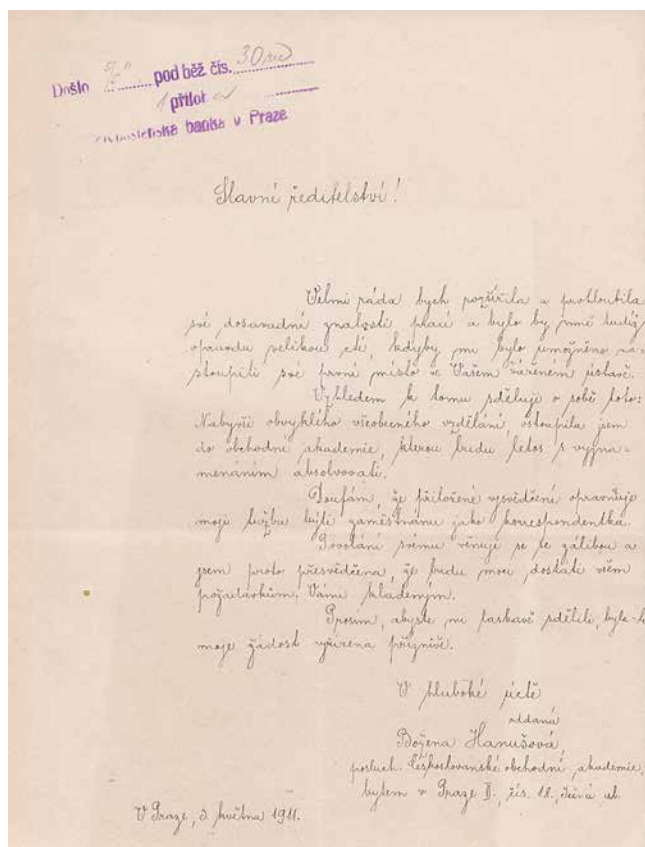 Došlo pod běž. čís. 30
příloh
banka v Praze
Slavní ředitelství!
Velmi ráda bych rozšířila a prohloubila
své dosavadní znalosti prací a bylo by mně tudíž
opravdu velikou ctí, kdyby mi bylo umožněno na-
stoupiti své první místo ve Vašem váženém ústavě.
Vzhledem k tomu sděluji o sobě toto:
Nabyvši obvyklého všeobecného vzdělání, vstoupila jsem
do obchodní akademie, kterou budu letos s vyzna-
menáním absolvovati.
Doufám, že přiložené vysvědčení opravňuje
moji tužbu býti zaměstnánu jako korrespondentka.
Povolání svému věnuji se se zálibou a
jsem proto přesvědčena, že budu moci dostáti všem
požadavkům, Vámi kladeným.
Prosím, abyste mi laskavě sdělili, byla-l
moje žádost vyřízena příznivě.
V hluboké úctě
oddaná
Božena Hanušová,
posluch. Českoslovanské obchodní akademie,
bytem v Praze II., čís. 18., Ječná ul.
V Praze, 3. května 1911.